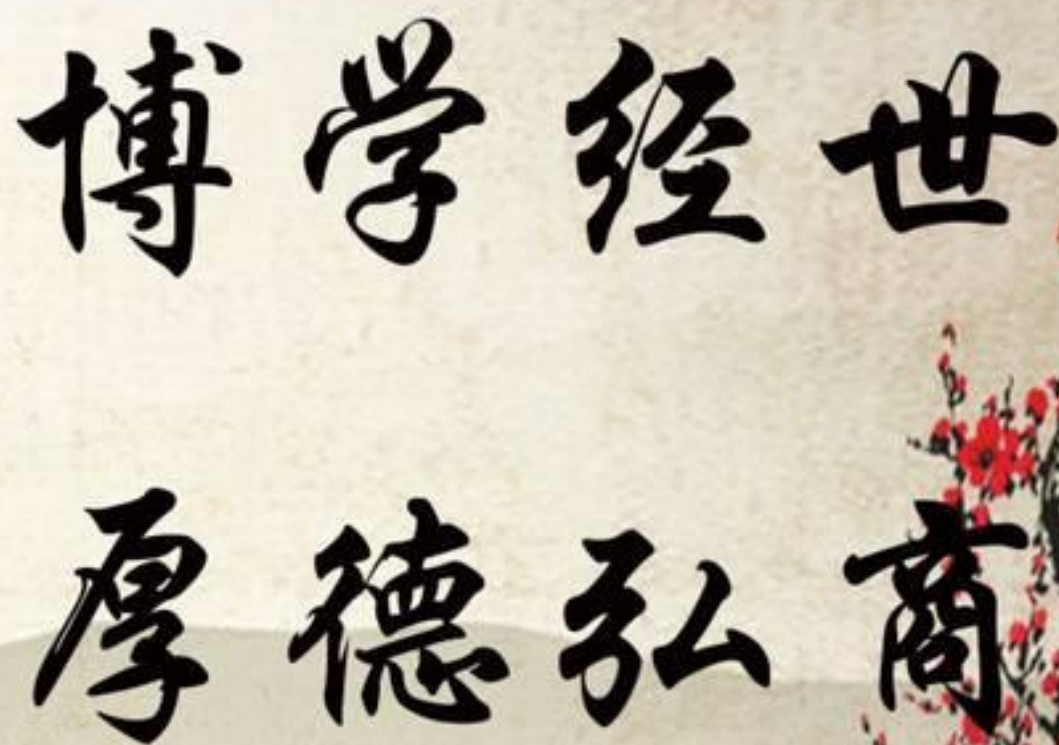 博学经世
厚德弘商